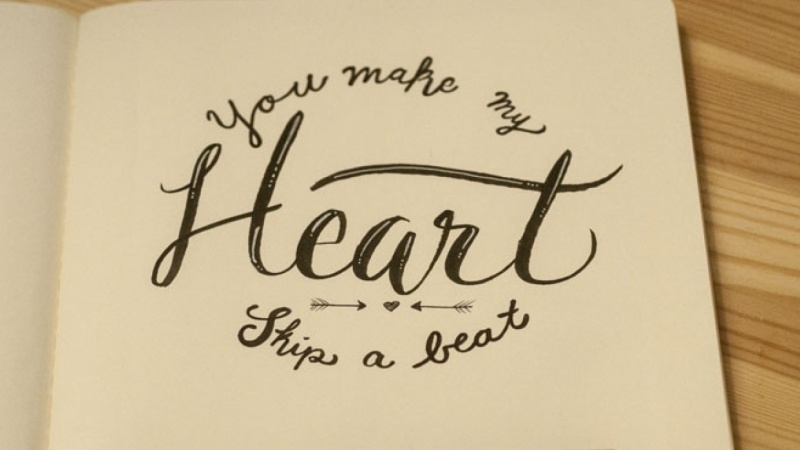 You make my
Heart
Skip a beat